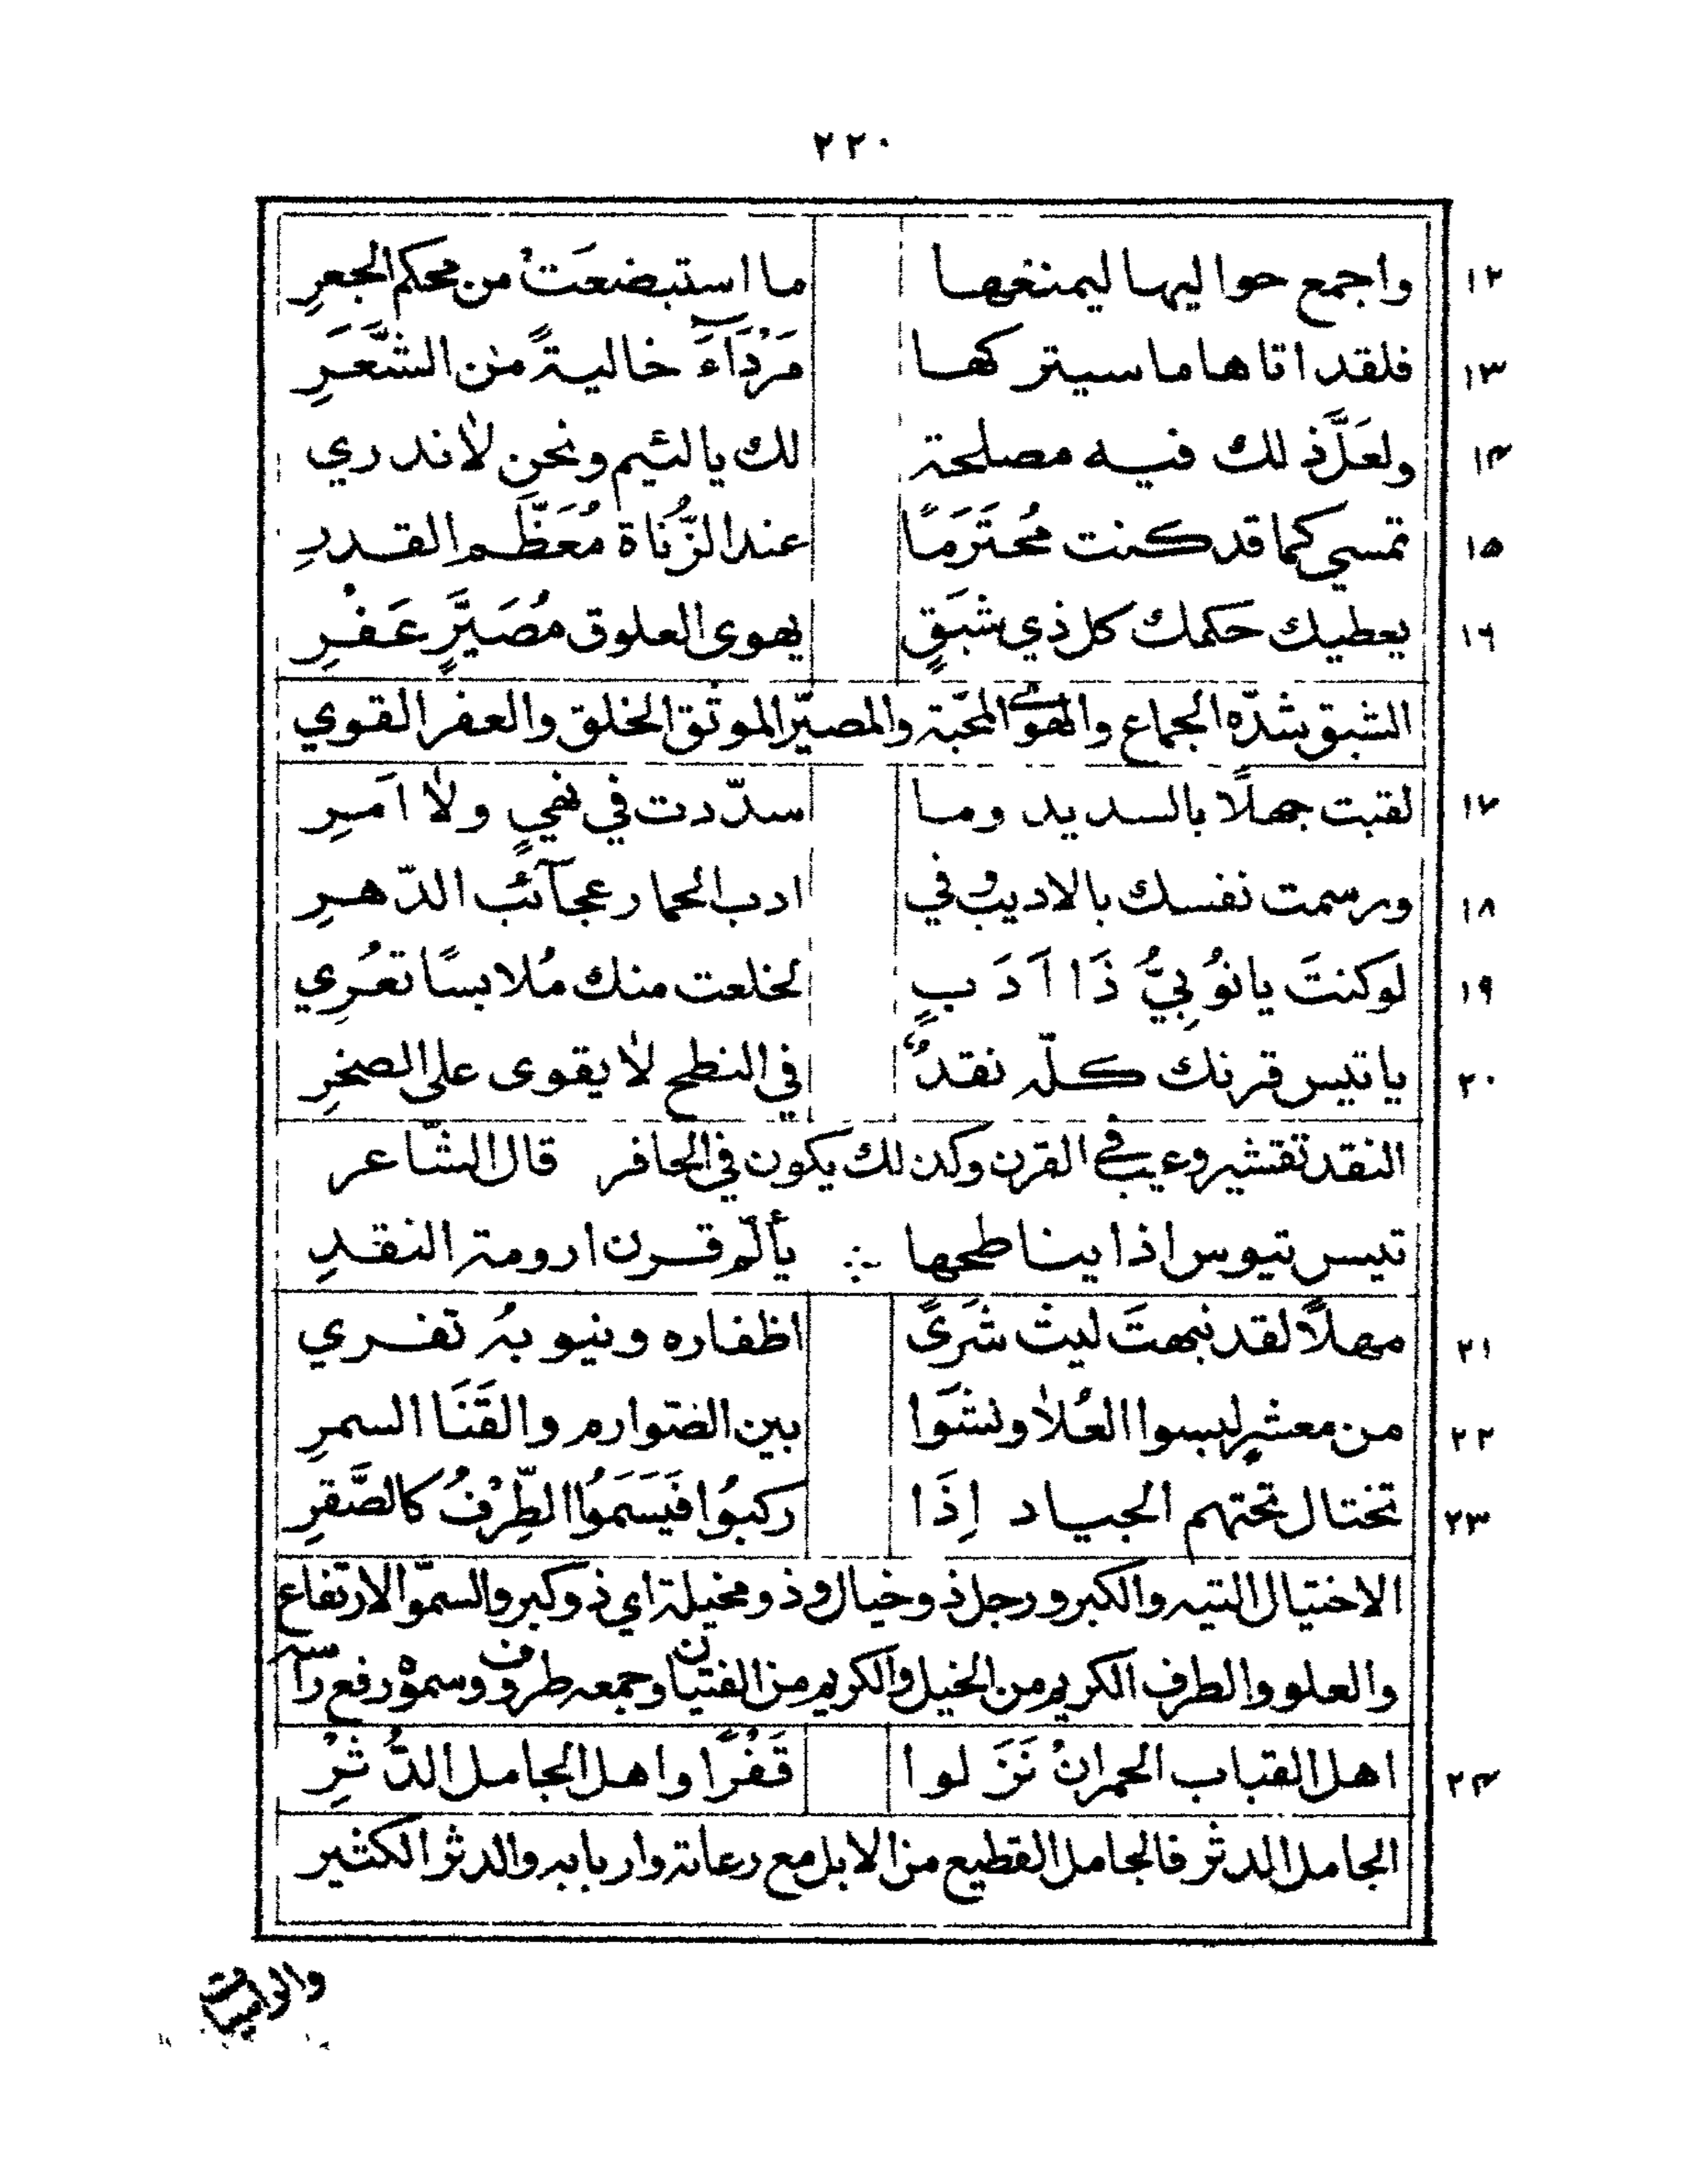 ٢٢٠
١٢ واجمع حواليها ليمنعها ما استبضعَتْ من محكم الجعرِ
١٣ فلقد اتاها ما سيتركها مَرْدَآءَ خاليةً من الشَّعَرِ
١٤ ولعَلَّ ذلك فيه مصلحة لك يا لئيم ونحن لا ندري
١٥ تمسي كما قد كنت مُحتَرَمًا عند الزُّناة مُعَظَّم القدرِ
١٦ يعطيك حكمك كل ذي شبَقٍ يهوى العلوق مُصَيَّرٍ عَفْرِ
الشبق شدّه الجماع والهوى المحبّة والمصيّر الموثق الخلق والعفر القوي
١٧ لقبت جهلًا بالسديد وما سدّدت في نهيٍ ولا اَمرِ
١٨ ورسمت نفسك بالاديب وفي ادب الحمار عجآئب الدّهرِ
١٩ لو كنتَ يا نُوبِيُّ ذَا اَدَبٍ لخلعت منك مُلابسًا تعُرِي
٢٠ يا تيس قرنك كلّه نقدٌ في النطح لا يقوى على الصخرِ
النقد تقشير وعيب في القرن وكذلك يكون في الحافر قال الشّاعر
تيس تيوس اذا يناطحها ∴ يألم قرن ارومة النقدِ
٢١ مهلًا لقد نبهتَ ليث شَرَىً اظفاره ونيوبهُ تفري
٢٢ من معشرٍ لبسوا العُلا ونشَوا بين الصوارم والقَنَا السمرِ
٢٣ تختال تحتهم الجياد اِذَا ركبوُا فَيَسَمَوُا الطِّرْفُ كالصَّقرِ
الاختيال التيه والكبر ورجل ذو خيال وذو مخيلة اي ذو كبر والسموّ الارتفاع
والعلو والطرف الكريم من الخيل والكريم من الفتيان وجمعه طروف وسموّه رفع راسه
٢٤ اهل القباب الحمر انْ نَزَلوا قَفْرًا واهل الجامل الدُّثْرِ
الجامل الدثر فالجامل القطيع من الابل مع رعاته واربابه والدثر الكثير